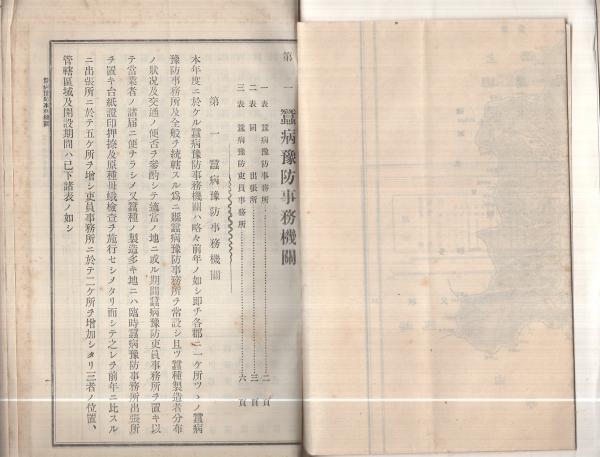 第一 蠶病豫防事務機關
一表 蠶病豫防事務所…………二頁
二表 同 出張所…………三頁
三表 蠶病豫防吏員事務所…………六頁
第一 蠶病豫防事務機關
本年度ニ於ケル蠶病豫防事務機關ハ略々前年ノ如シ卽チ各郡ニ一ケ所ツヽノ蠶病
豫防事務所及全般ヲ統轄スル爲ニ縣蠶病豫防事務所ヲ常設シ且ツ蠶種製造者分布
ノ狀況及交通ノ便否ヲ參酌シテ適當ノ地ニ或ル期間蠶病豫防吏員事務所ヲ置キ以
テ當業者ノ諸屆ニ便ナラシメ又蠶種ノ製造多キ地ニハ臨時蠶病豫防事務所出張所
ヲ置キ台紙證印押捺及原種母蛾檢查ヲ施行セシメタリ而シテ之レヲ前年ニ比スル
ニ出張所ニ於テ五ケ所ヲ增シ吏員事務所ニ於テ二ケ所ヲ增加シタリ三者ノ位置、
管轄區域及開設期間ハ已下諸表ノ如シ
一